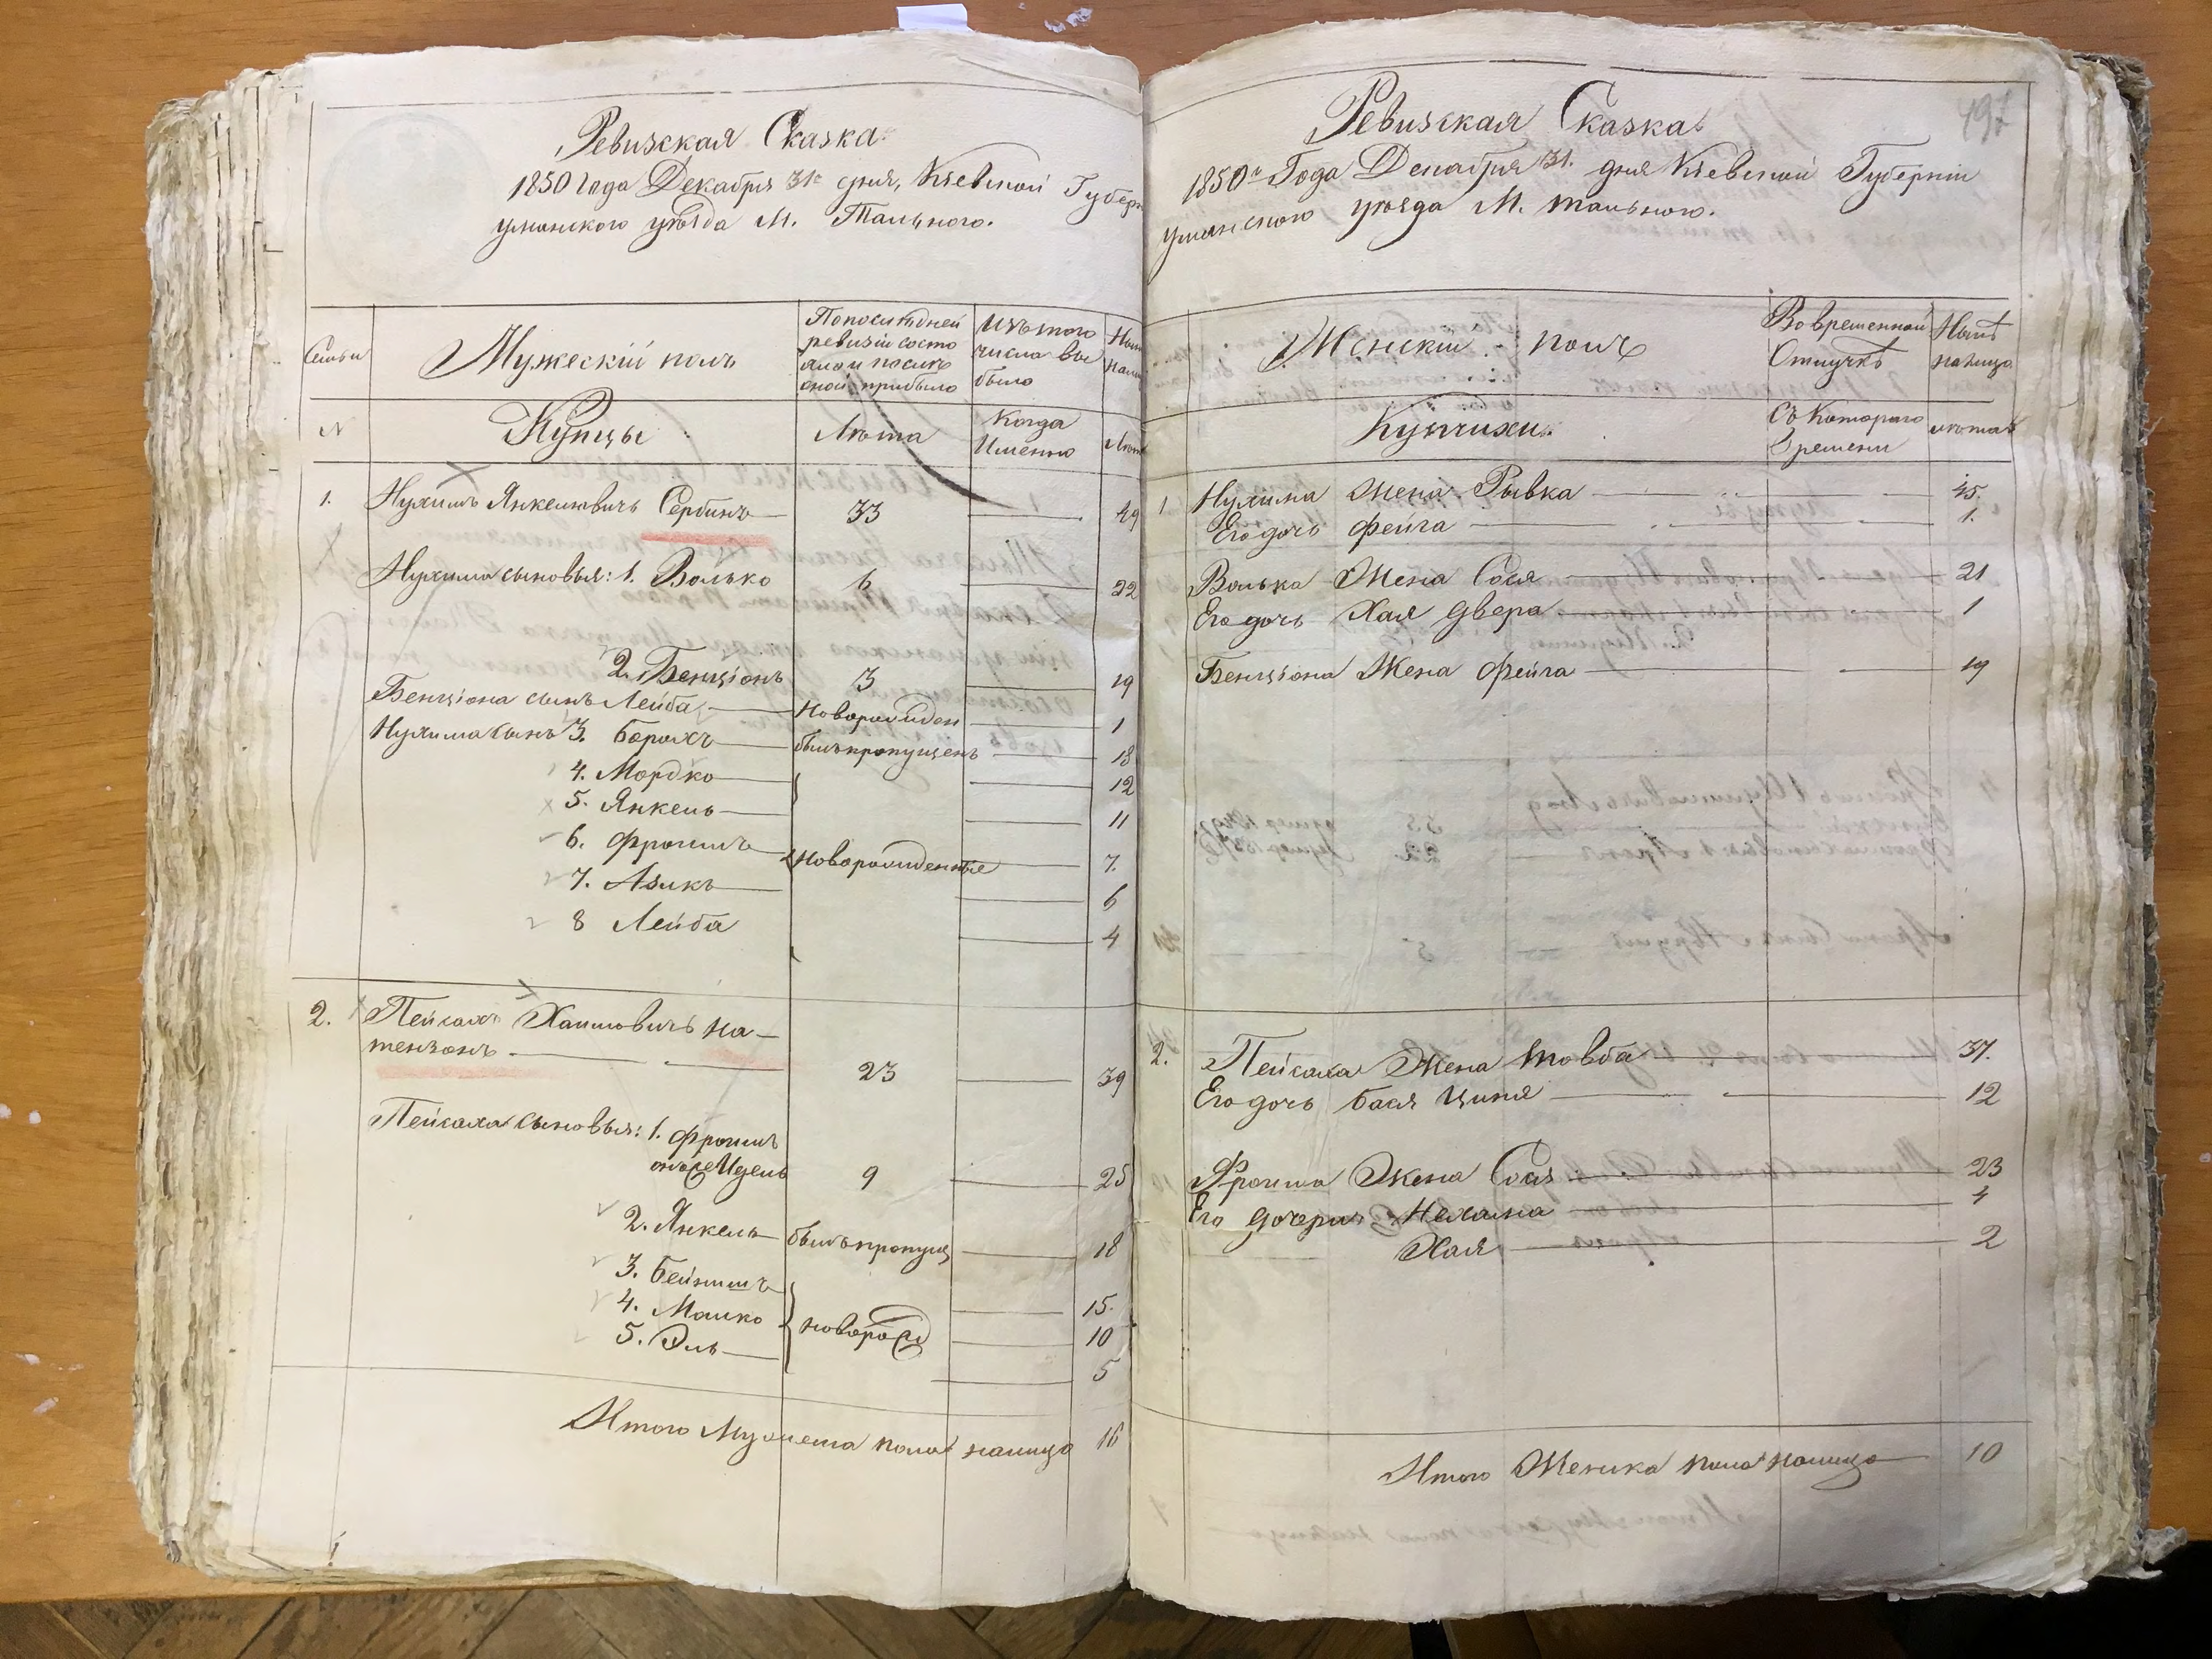 Ревизская Сказка
1850 года Декабря 31го дня, Кіевской Губерн
уманского уѣзда М. Тального.
Семьи
Мужескій полъ
По последней
ревизіи состо
яло и послѣ
оной прибыло
Изъ того
числа вы
было
Ны
нали
N
Купцы
Лѣта
Когда
Именно
Лѣт
1. Нухимъ Янкелювичъ Сербинъ 33 49
Нухима сыновья: 1. Волько 6 22
2. Бенціонъ 3 19
Бенціона сынъ Лейба Новорожден 1
Нухима сынъ 3. Борохъ былъ пропущенъ 18
4. Мордко 12
5. Янкель 11
6. Фроимъ Новорожденные 7.
7. Азикъ 6
8 Лейба 4
2. Пейсахъ Хаимовичъ На-
тензонъ 23 39
Пейсаха сыновья: 1. Фроимъ
онъ же Идель 9 25
2. Янкель былъ пропущ 18
3. Бейнишъ 15.
4. Мошко новорожд 10
5. Эль 5
Итого Мужеска пола налицо 16
197
Ревизская Сказка
1850го Года Декабря 31. дня Кіевской Губерніи
уманского уѣзда М. Тального.
Женскій полъ
Во временной
Отлучкѣ
Нынѣ
налицо
Купчихи
Съ Котораго
Времени
лѣта
1 Нухима Жена Рывка 45.
Его дочь Фейга 1.
Волька Жена Сося 21
Его дочь Хая Двера 1
Бенціона Жена Фейга 19
2. Пейсаха Жена Товба 37.
Его дочь Бася Ципя 12
Фроима Жена Сося 23
Его дочери Нехама 4
Хая 2
Итого Женска пола налицо 10